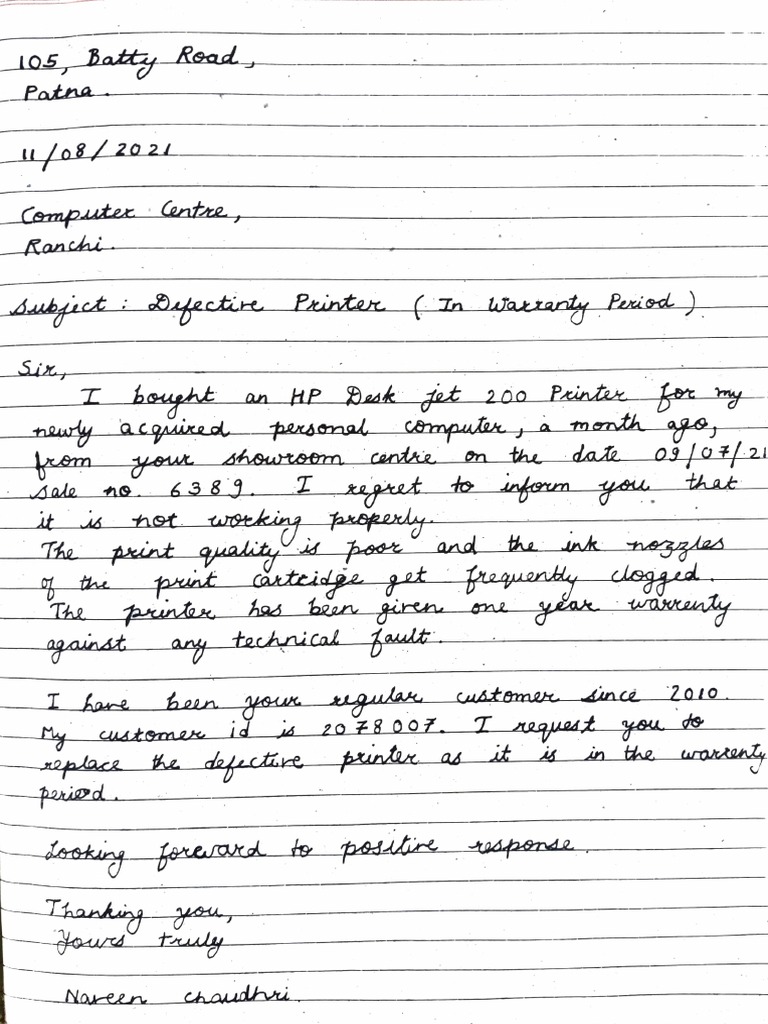 105, Batty Road,
Patna.
11/08/2021
Computer Centre,
Ranchi.
Subject : Defective Printer ( In Warranty Period )
Sir,
I bought an HP Desk jet 200 Printer for my
newly acquired personal computer, a month ago,
from your showroom centre on the date 09/07/21
sale no. 6389. I regret to inform you that
it is not working properly.
The print quality is poor and the ink nozzles
of the print cartridge get frequently clogged.
The printer has been given one year warrenty
against any technical fault.
I have been your regular customer since 2010.
My customer id is 2078007. I request you to
replace the defective printer as it is in the warrenty
period.
Looking forward to positive response.
Thanking you,
Yours truly
Naveen chaudhri.